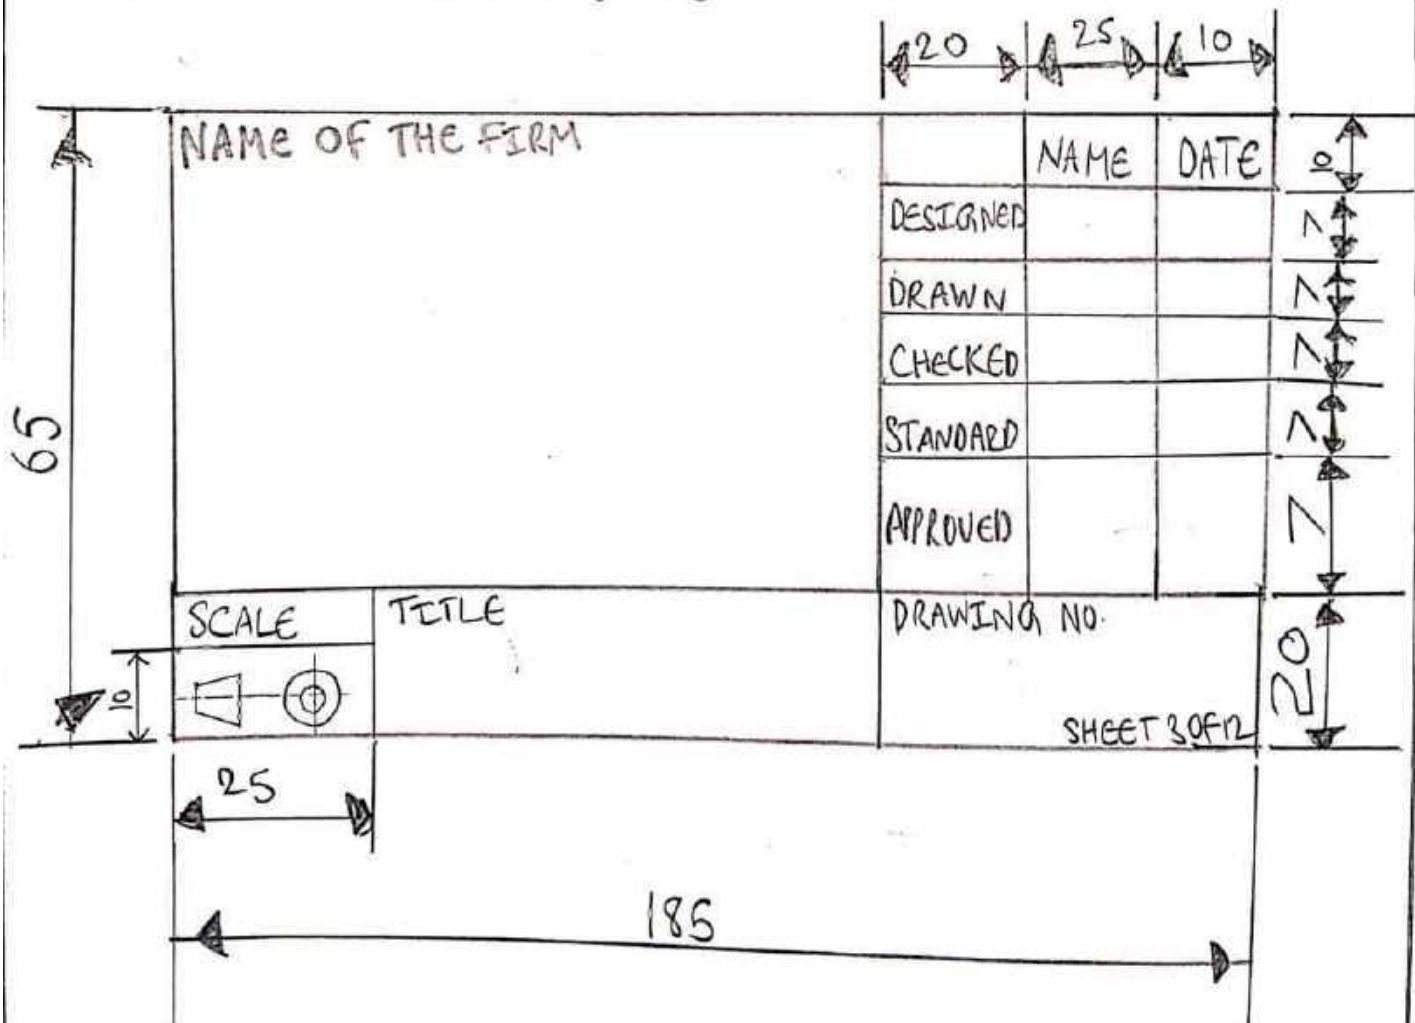 20 25 10
NAME OF THE FIRM
NAME DATE
10
DESIGNED
7
DRAWN
7
CHECKED
7
STANDARD
7
APPROVED
7
65
SCALE
TITLE
DRAWING NO.
20
10
SHEET 3 OF 12
25
185